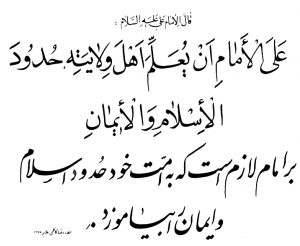 قالَ الإمامُ عَلِیٌّ عَلَیْهِ السَّلام :
عَلَى الْأَمامِ أَنْ یُعَلِّمَ أَهْلَ وِلایَتِهِ حُدُودَ
الْأِسْلامِ وَالْأیمانِ
بر امام لازم است که به امت خود حدود اسلام
و ایمان را بیاموزد .